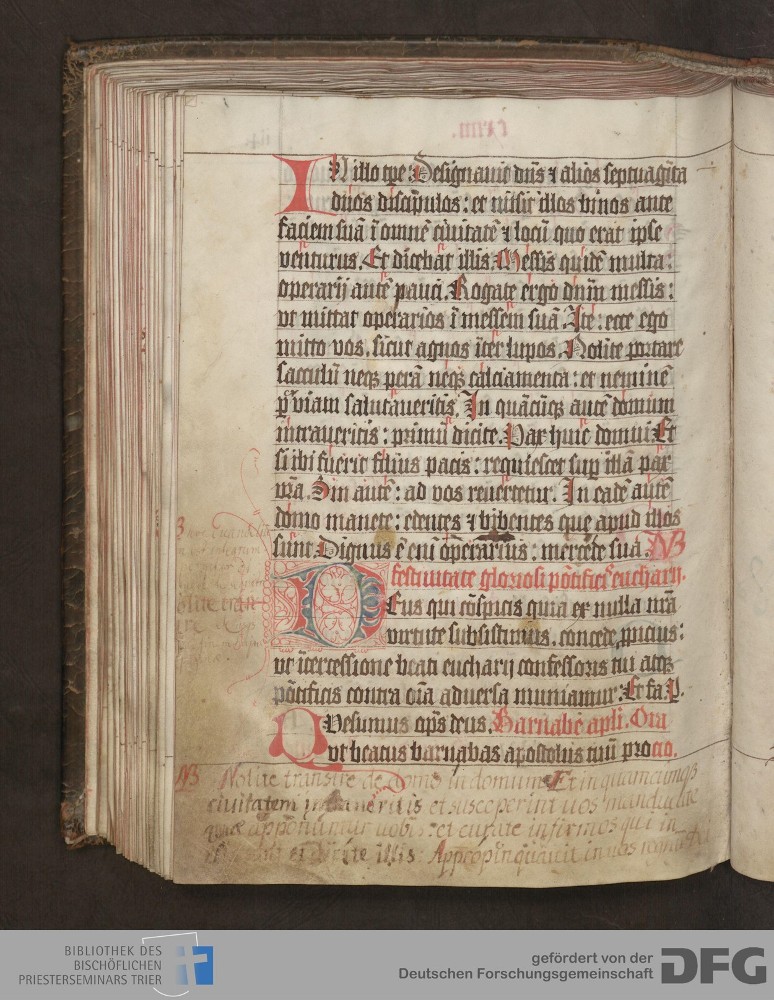 IN illo tpe: Designauit dns ⁊ alios septuagīta
duos discipulos: et misit illos binos ante
faciem suā ī omnē ciuitatē ⁊ locū quo erat ipse
venturus. Et dicebat illis. Messis quidē multa:
operarij autē pauci. Rogate ergo dnm messis:
vt mittat operarios ī messem suā. Ite: ecce ego
mitto vos. sicut agnos īter lupos. Nolite portare
sacculū neqꝫ perā neqꝫ calciamenta: et neminē
ꝑ viam salutaueritis. In quācūqꝫ autē domum
intraueritis: primū dicite. Pax huic domui. Et
si ibi fuerit filius pacis: requiescet sup illā pax
vra. Sin autē: ad vos reuertetur. In eadē autē
domo manete: edentes ⁊ bibentes que apud illos
sunt. Dignus ē eni operarius: mercede sua. NB
festiuitate gloriosi pōtificꝭ eucharij.
DEus qui cōspicis quia ex nulla nrā
virtute subsistimus. concede ꝓpicius:
vt ītercessione beati eucharij confessoris tui atqꝫ
pōtificis contra oīa aduersa muniamur: Et fa. P.
QVesumus ops deus. Barnabe apli. Ora
vt beatus barnabas apostolus tuus pro tio.
NB Nolite transire de Domo in domum Et in quamcumqꝫ
ciuitatem intraueritis et susceperint uos manducate
quæ apponuntur uobis: et curate infirmos qui in
et dicite illis: Appropinquauit in uos regnū Dei
BIBLIOTHEK DES
BISCHÖFLICHEN
PRIESTERSEMINARS TRIER
gefördert von der
Deutschen Forschungsgemeinschaft
DFG